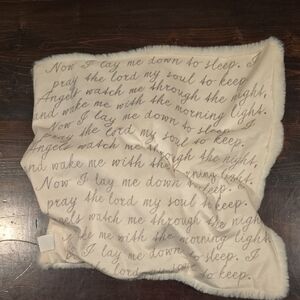 Now I lay me down to sleep. I
pray the lord my soul to keep.
Angels watch me through the night,
and wake me with the morning light.
Now I lay me down to sleep. I
pray the lord my soul to keep.
Angels watch me through the night,
and wake me with the morning light.
Now I lay me down to sleep.
pray the lord my soul to keep.
gels watch me through the night
wake me with the morning light
I lay me down to sleep. I
lord my soul to keep.